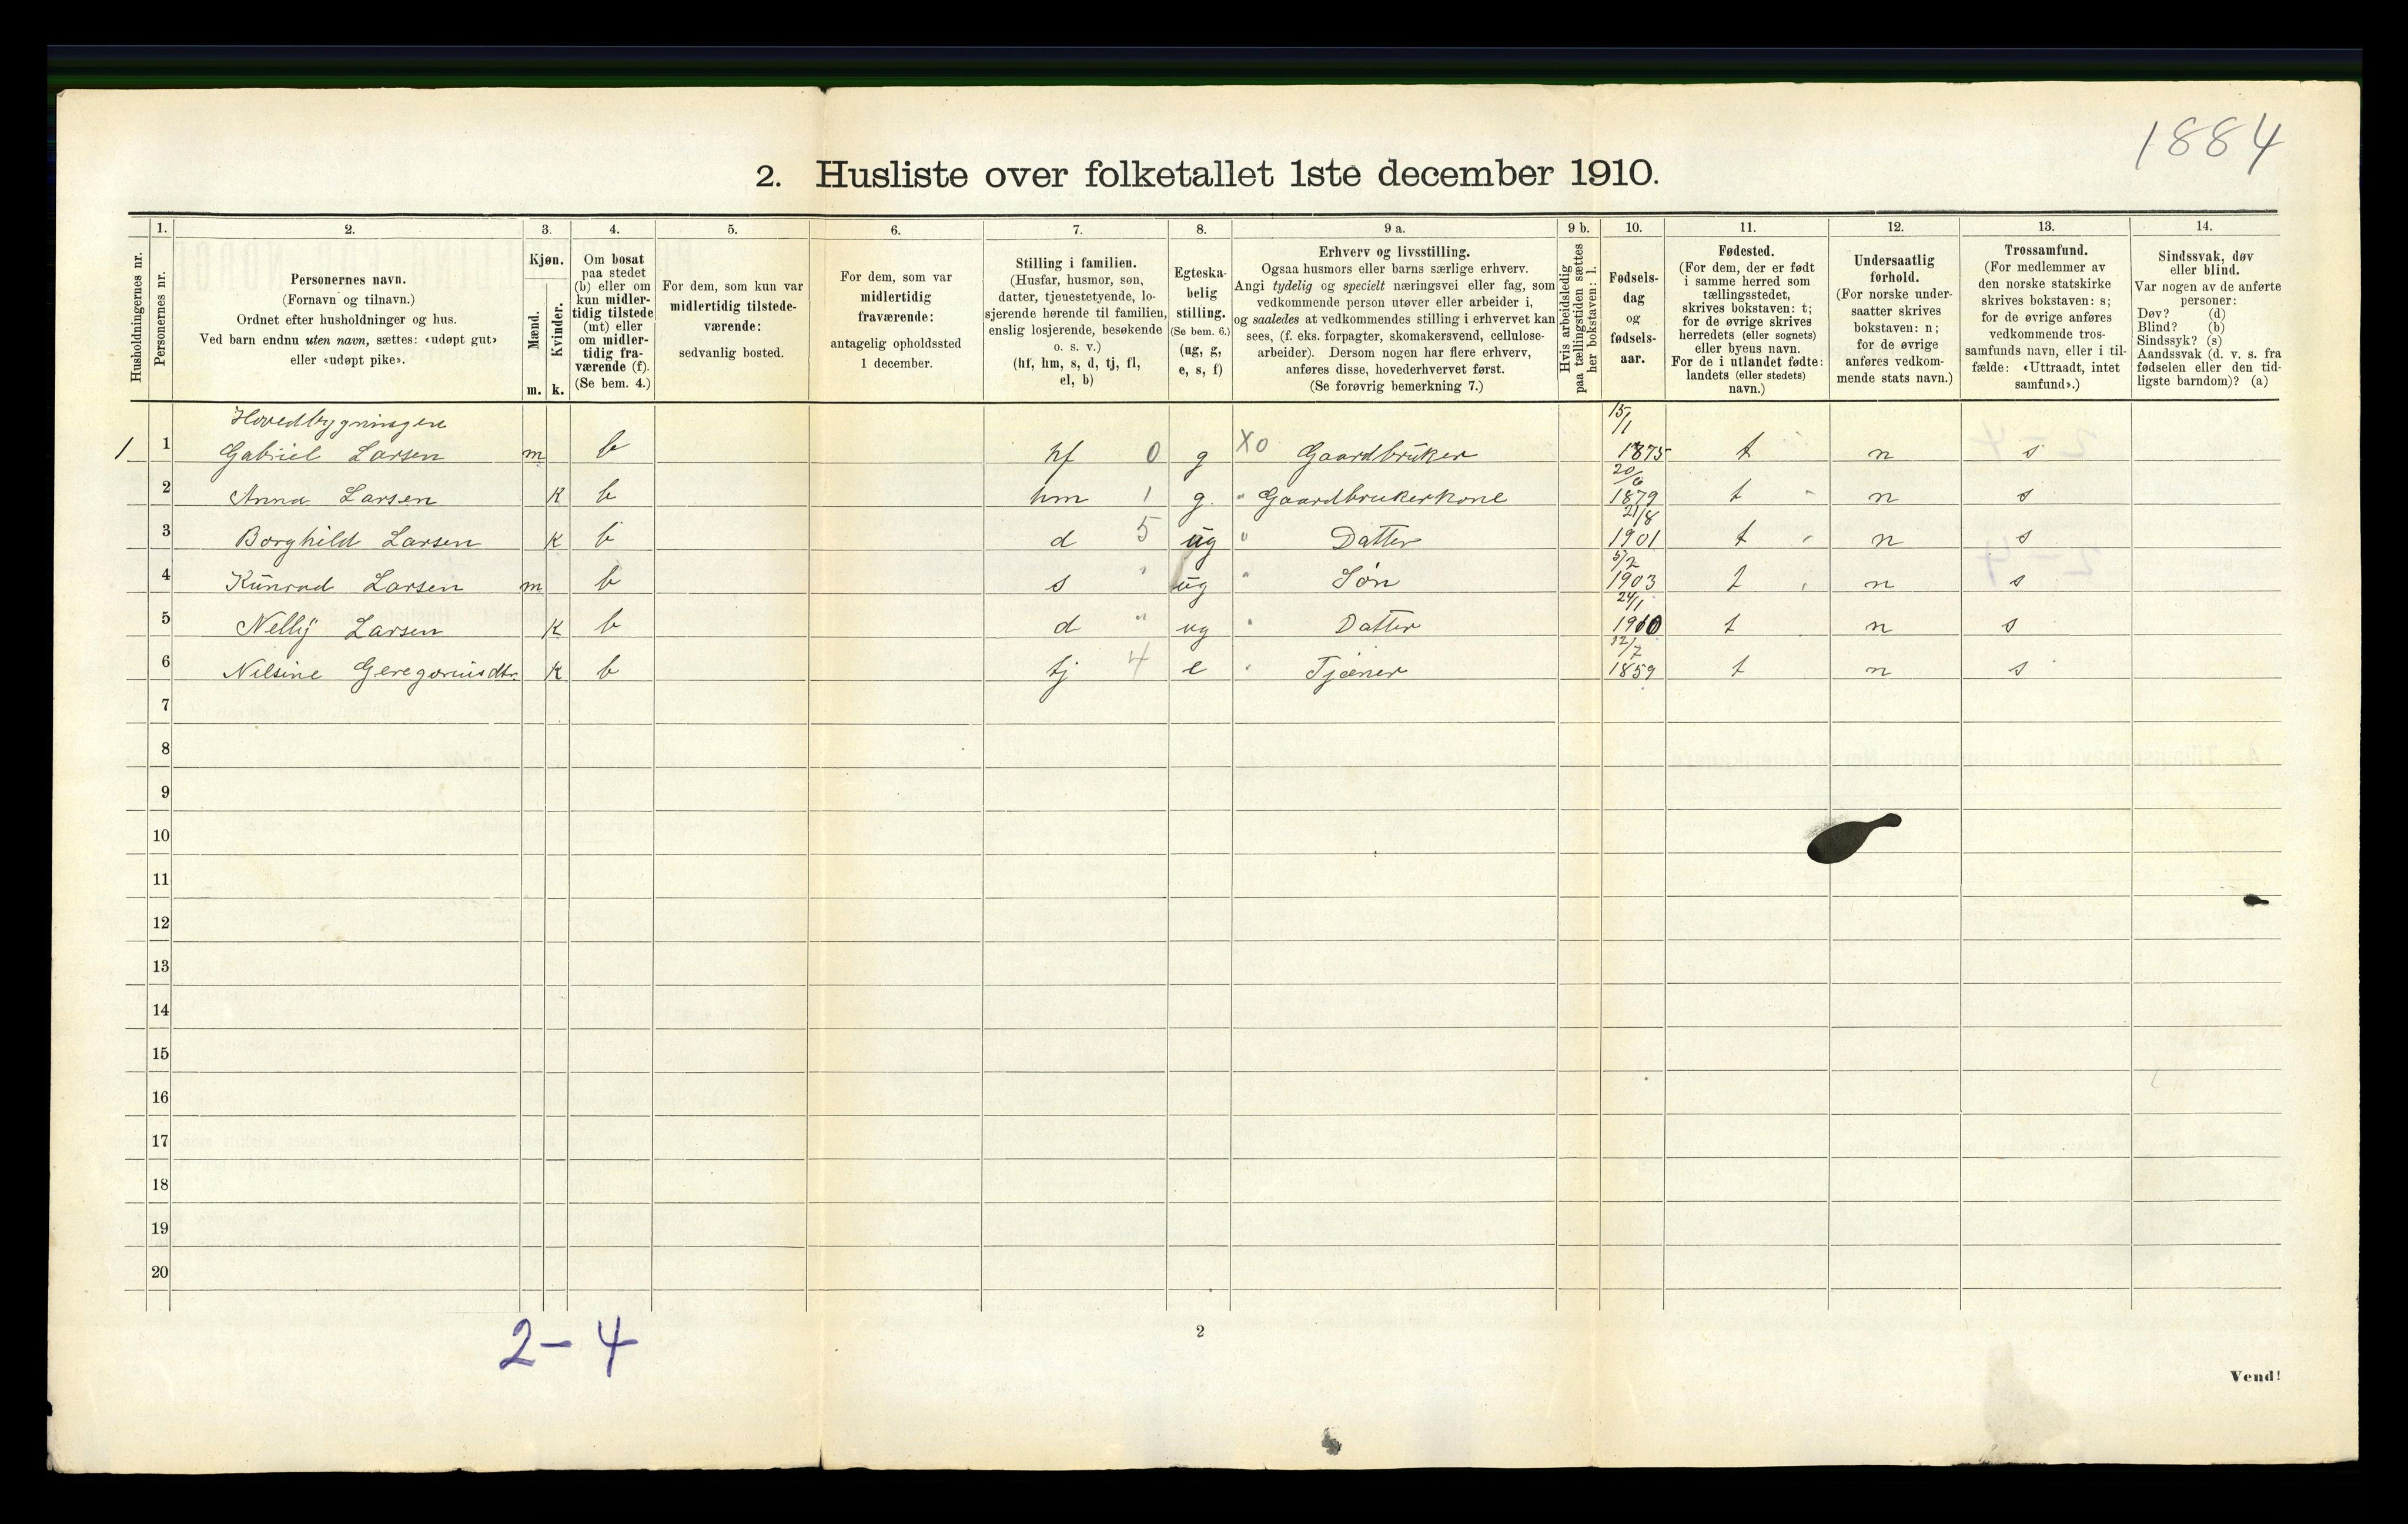 1884
2. Husliste over folketallet 1ste december 1910.
Husholdningernes nr.
1.
Personernes nr.
2.
Personernes navn.
(Fornavn og tilnavn.)
Ordnet efter husholdninger og hus.
Ved barn endnu uten navn, sættes: «udøpt gut»
eller «udøpt pike».
3.
Kjøn.
Mænd.
Kvinder.
m. k.
4.
Om bosat
paa stedet
(b) eller om
kun midler-
tidig tilstede
(mt) eller
om midler-
tidig fra-
værende (f).
(Se bem. 4.)
5.
For dem, som kun var
midlertidig tilstede-
værende:
sedvanlig bosted.
6.
For dem, som var
midlertidig
fraværende:
antagelig opholdssted
1 december.
7.
Stilling i familien.
(Husfar, husmor, søn,
datter, tjenestetyende, lo-
sjerende hørende til familien,
enslig losjerende, besøkende
o. s. v.)
(hf, hm, s, d, tj, fl,
el, b)
8.
Egteska-
belig
stilling.
(Se bem. 6.)
(ug, g,
e, s, f)
9 a.
Erhverv og livsstilling.
Ogsaa husmors eller barns særlige erhverv.
Angi tydelig og specielt næringsvei eller fag, som
vedkommende person utøver eller arbeider i,
og saaledes at vedkommendes stilling i erhvervet kan
sees, (f. eks. forpagter, skomakersvend, cellulose-
arbeider). Dersom nogen har flere erhverv,
anføres disse, hovederhvervet først.
(Se forøvrig bemerkning 7.)
9 b.
Hvis arbeidsledig
paa tællingstiden sættes
her bokstaven: l.
10.
Fødsels-
dag
og
fødsels-
aar.
11.
Fødested.
(For dem, der er født
i samme herred som
tællingsstedet,
skrives bokstaven: t;
for de øvrige skrives
herredets (eller sognets)
eller byens navn.
For de i utlandet fødte:
landets (eller stedets)
navn.)
12.
Undersaatlig
forhold.
(For norske under-
saatter skrives
bokstaven: n;
for de øvrige
anføres vedkom-
mende stats navn.)
13.
Trossamfund.
(For medlemmer av
den norske statskirke
skrives bokstaven: s;
for de øvrige anføres
vedkommende tros-
samfunds navn, eller i til-
fælde: «Uttraadt, intet
samfund».)
14.
Sindssvak, døv
eller blind.
Var nogen av de anførte
personer:
Døv? (d)
Blind? (b)
Sindssyk? (s)
Aandssvak (d. v. s. fra
fødselen eller den tid-
ligste barndom)? (a)
Hovedbygningen
1 1 Gabriel Larsen m b hf 0 g X0 Gaardbruker 15/1 1875 t n s
2 Anna Larsen k b hm 1 g. " Gaardbrukerkone 20/6 1879 t n s
3 Borghild Larsen k b d 5 ug " Datter 21/8 1901 t n s
4 Kunrad Larsen m b s " ug " Søn 5/2 1903 t n s
5 Nelly Larsen k b d " ug " Datter 24/1 1910 t n s
6 Nilsine Geregoriusdtr. k b tj 4 e " Tjæner 12/7 1859 t n s
7
8
9
10
11
12
13
14
15
16
17
18
19
20
2-4
2
Vend!